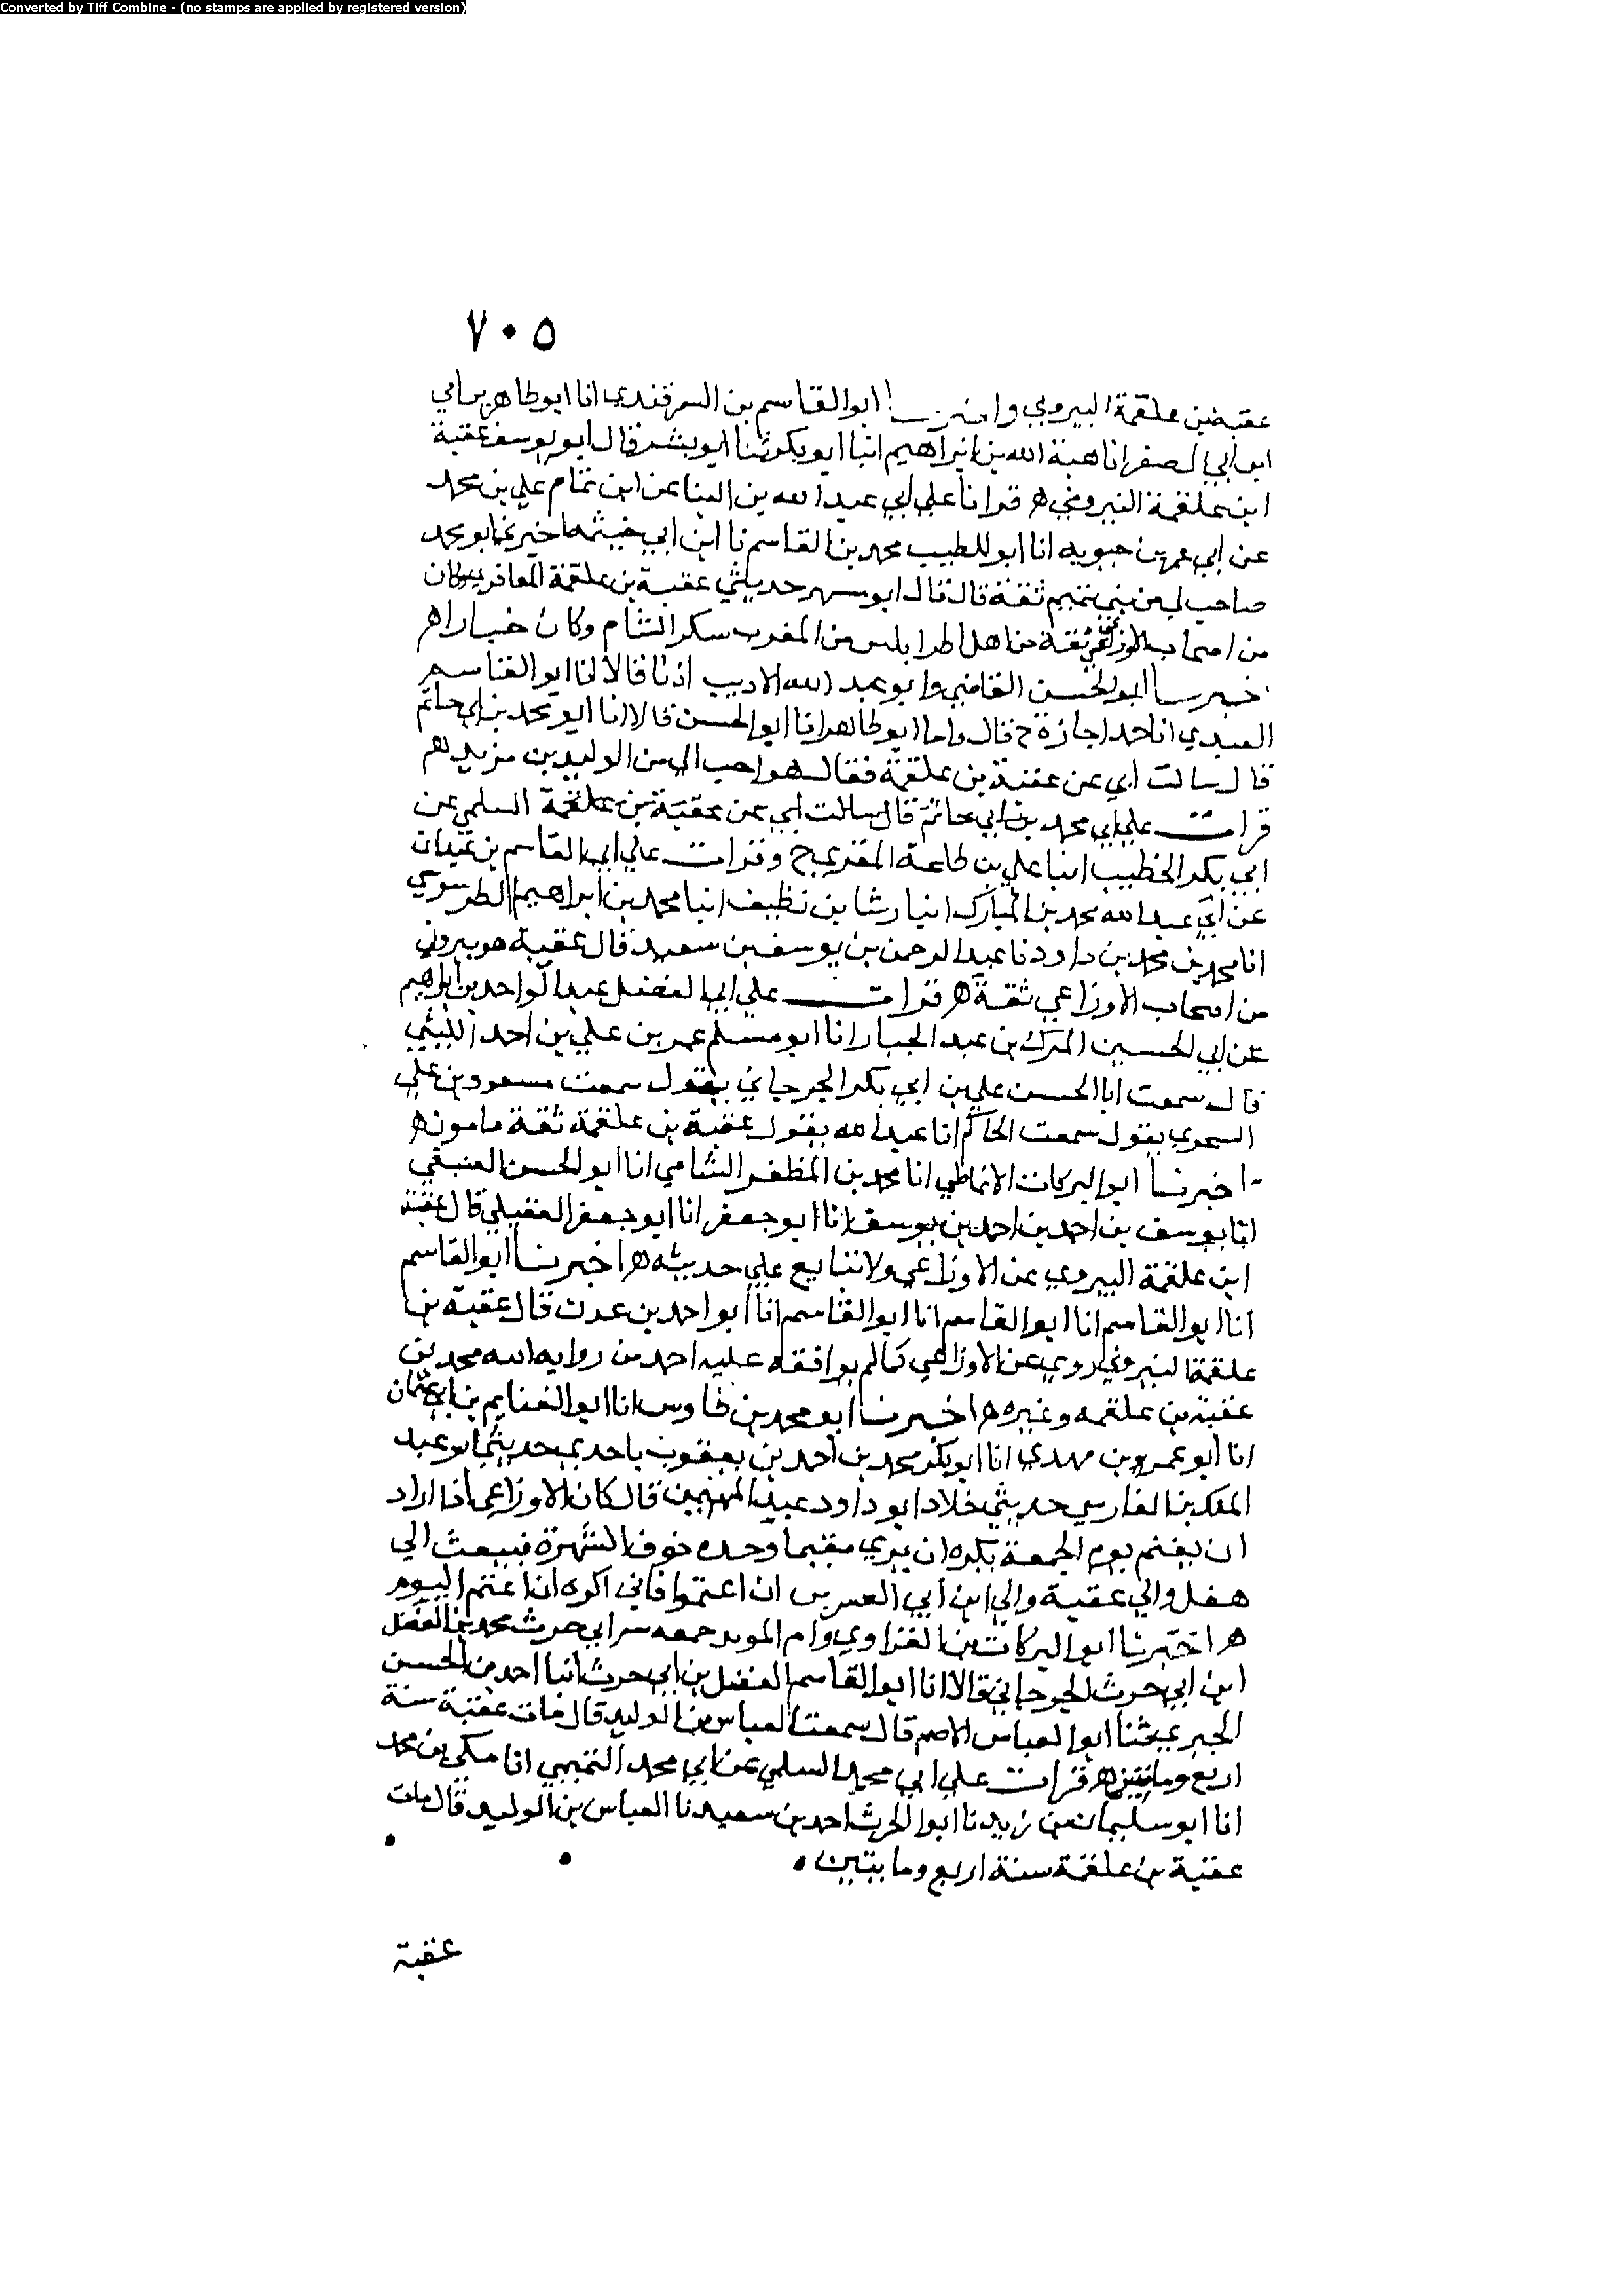 Converted by Tiff Combine - (no stamps are applied by registered version)
٧٠٥
عقبة بن علقمة البيروتي واخبرنا ابوالقاسم بن السمرقندي انا ابوطاهر بن ابي
ابن ابي الصقر انا هبة الله بن ابراهيم انبا ابو بكر ثنا ابو بشر قال ابو يوسف عقبة
ابن علقمة البيروتي ه قرانا علي ابي عبد الله بن البنا عن ابن تمام علي بن محمد
عن ابي عمر بن حيويه انا ابو الطيب محمد بن القاسم نا ابن ابي خيثمة اخبرني ابو محمد
صاحب لي من بني تميم ثقة قال قال ابو مسهر حدثني عقبة بن علقمة المعافري وكان
من اصحاب الاوزاعي ثقة من اهل اطرابلس من المغرب سكن الشام وكان خيارا ه
اخبرنا ابو الحسن القاضي وابو عبد الله الاديب اذنا قالا انا ابو القاسم
العبدي انا حمد اجازة ح قال واما ابو طاهر انا ابو الحسن قالا انا ابو محمد بن ابي حاتم
قال سالت ابي عن عقبة بن علقمة فقال هو احب الي من الوليد بن مزيد ه
قرات علي ابي محمد بن ابي حاتم قال سالت ابي عن عقبة بن علقمة السلمي عن
ابي بكر الخطيب انبا علي بن طلحة المقري ح وقرات علي ابي القاسم بن عبدان
عن ابي عبد الله محمد بن المبارك انبا رشا بن نظيف انبا محمد بن ابراهيم الطرسوسي
انا محمد بن محمد بن داود نا عبد الرحمن بن يوسف بن سعيد قال عقبة هو بيروتي
من اصحاب الاوزاعي ثقة ه قرات علي ابي الفضل عبد الواحد بن ابراهيم
عن ابي الحسين المبرك بن عبد الجبار انا ابو مسلم عمر بن علي بن احمد الليثي
قال سمعت ابا الحسن علي بن ابي بكر الجرجاني يقول سمعت مسعود بن علي
السجزي يقول سمعت الحاكم انا عبد الله يقول عقبة بن علقمة ثقة مامون ه
اخبرنا ابو البركات الانماطي انا محمد بن المظفر الشامي انا ابو الحسن العتيقي
انا يوسف بن احمد بن احمد بن يوسف انا ابو جعفر انا ابو جعفر العقيلي قال عقبة
ابن علقمة البيروتي عن الاوزاعي ولا يتابع علي حديثه ه اخبرنا ابو القاسم
انا ابو القاسم انا ابو القاسم انا ابو القاسم انا ابو احمد بن عدي قال عقبة بن
علقمة البيروتي روي عن الاوزاعي كما لم يوافقه عليه احد من رواية ابنه محمد بن
عقبة بن علقمه وغيره ه اخبرنا ابو محمد بن طاوس انا ابو الغنايم بن ابي عثمان
انا ابو عمرو بن مهدي انا ابو بكر محمد بن احمد بن يعقوب نا جدي حدثني ابو عبد
الملك بن الفارسي حدثني خلاد ابو داود عبد المهيمن قال كان الاوزاعي اذا اراد
ان يعتم يوم الجمعة يكره ان يري معتما وحده خوف الشهرة فيبعث الي
هقل والي عقبة والي ابن ابي العشرين ان اعتموا فاني اكره ان اعتم اليوم
ه اخبرنا ابو البركات بن الفراوي وام المويد جمعه بنت ابي حرث محمد بن الفضل
ابن ابي حرث الجرجاني قالا انا ابو القاسم الفضل بن ابي حرث انبا احمد بن الحسن
الحيري ثنا ابو العباس الاصم قال سمعت العباس بن الوليد قال مات عقبة سنة
اربع ومايتين ه قرات علي ابي محمد السلمي عن ابي محمد التميمي انا مكي بن محمد
انا ابو سليمان بن زبر نا ابو الحرث احمد بن سعيد نا العباس بن الوليد قال مات
عقبة بن علقمة سنة اربع ومايتين
عقبة